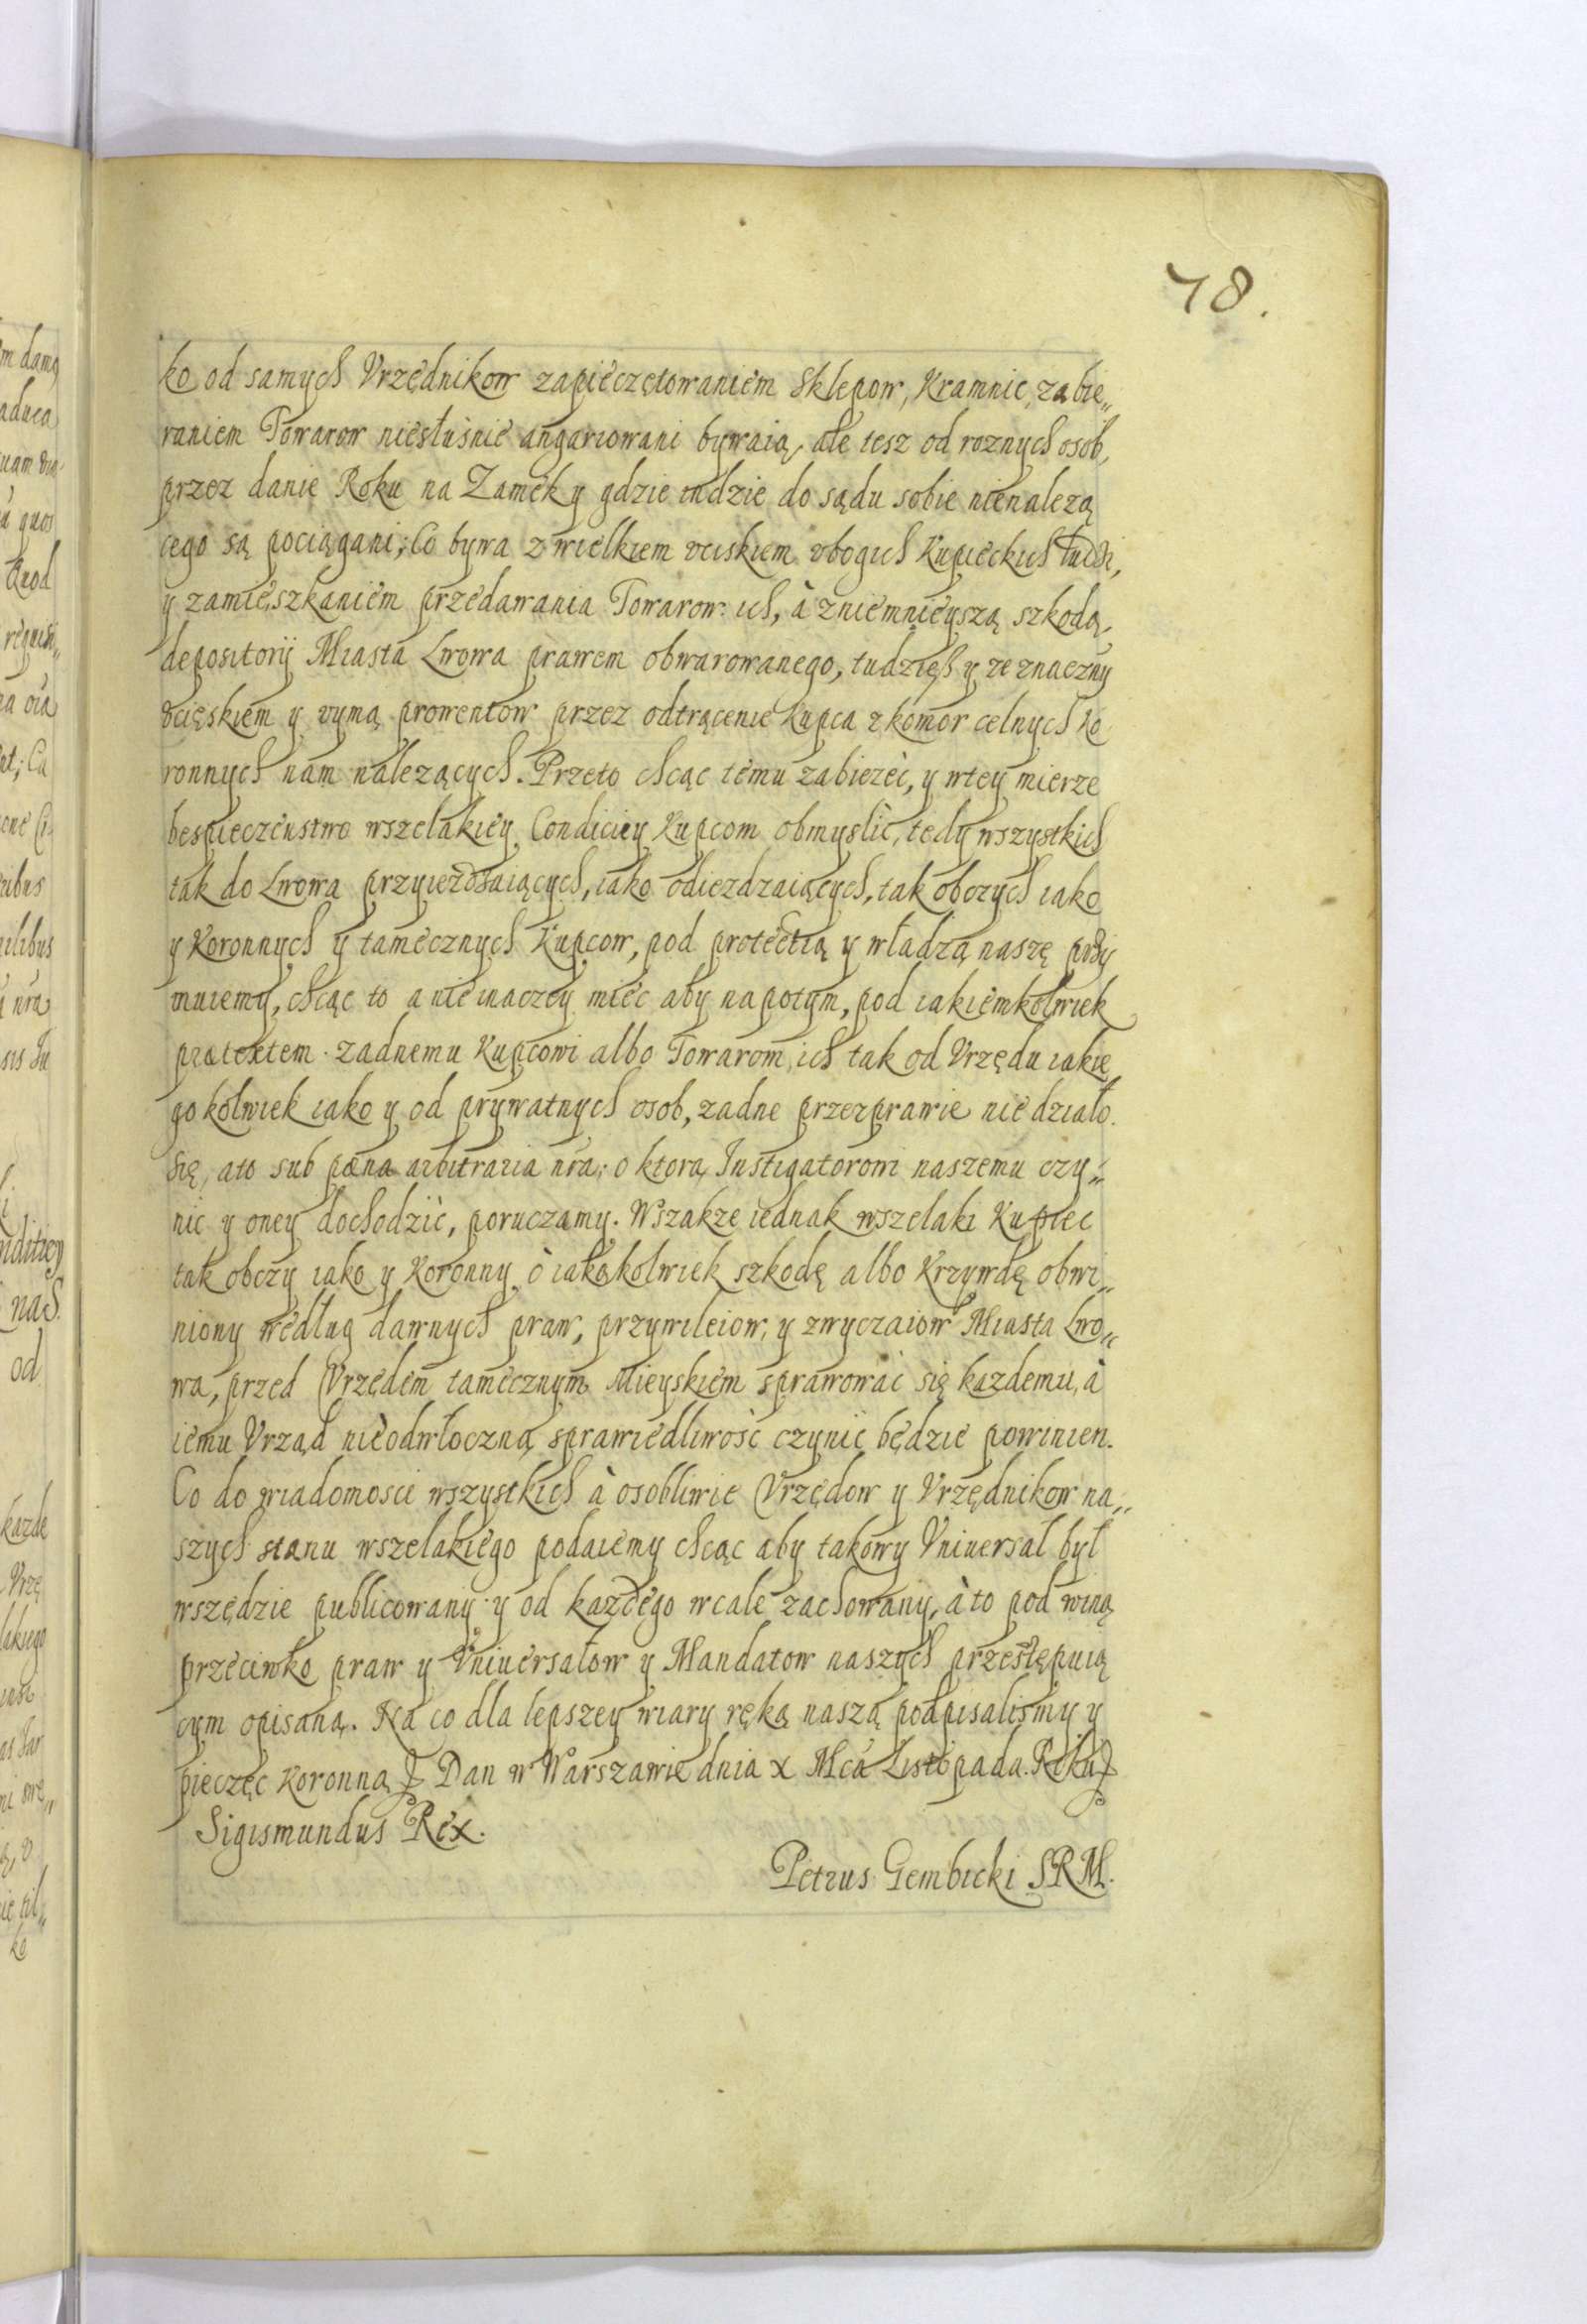 78.
ko od samych Vrzędnikow zapieczętowaniem Sklepow, Kramnic, zabie„
raniem Towarow niesłuśnie angariowani bywaią, ale tesz od roznych osob,
przez danie Roku na Zamek y gdzie indzie do sądu sobie nienalezą
cego są pociągani; Co bywa z wielkiem vciskiem vbogich Kupieckich ludzi,
y zamieszkaniem przedawania Towarow ich, à zniemnieyszą szkodą
depositorij Miasta Lwowa prawem obwarowanego, tudziesz y ze znaczny
vcięskiem y vymą prowentow przez odtrącenie Kupca z komor celnych Ko
ronnych nam nalezących. Przeto chcąc temu zabiezeć, y wtey mierze
bespieczenstwo wszelakiey Condiciey Kupcom obmyslić, tedy wszystkich
tak do Lwowa przyiezdzaiących, iako odiezdzaiących, tak obczych iako
y Koronnych y tamecznych Kupcow, pod protectią y władzą naszę przy
muiemy, chcąc to a nie inaczey mieć aby napotym, pod iakiemkolwiek
prætextem zadnemu Kupcowi albo Towarom, ich tak od Vrzędu iakie
gokolwiek iako y od prywatnych osob, zadne przezprawie nie działo
się, ato sub pœna arbitraria nra; o ktorą Instigatorowi naszemu czy„
nic y oney dochodzić, poruczamy. Wszakze iednak wszelaki Kupiec
tak obczy iako y Koronny ò iakąkolwiek szkodę albo Krzywdę obwi„
niony według dawnych praw, przywileiow, y zwyczaiow Miasta Lwo„
wa, przed Vrzędem tamecznym Mieyskiem sprawować się kazdemu, à
iemu Vrząd nieodwłoczną sprawiedliwość czynić będzie powinien.
Co do wiadomosci wszystkich à osobliwie Vrzędow y Vrzędnikow na„
szych stanu wszelakiego podaiemy chcąc aby takowy Vniuersał był
wszędzie publicowany y od kazdego wcale zachowany, à to pod winą
przeciwko praw y Vniuersałow y Mandatow naszych przestępuią
cym opisaną. Na co dla lepszey wiary ręką naszą podpisalismy y
pieczęc Koronną Dan w Warszawie dnia x Mca Listopada. Roku
Sigismundus Rex.
Petrus Gembicki SRM.